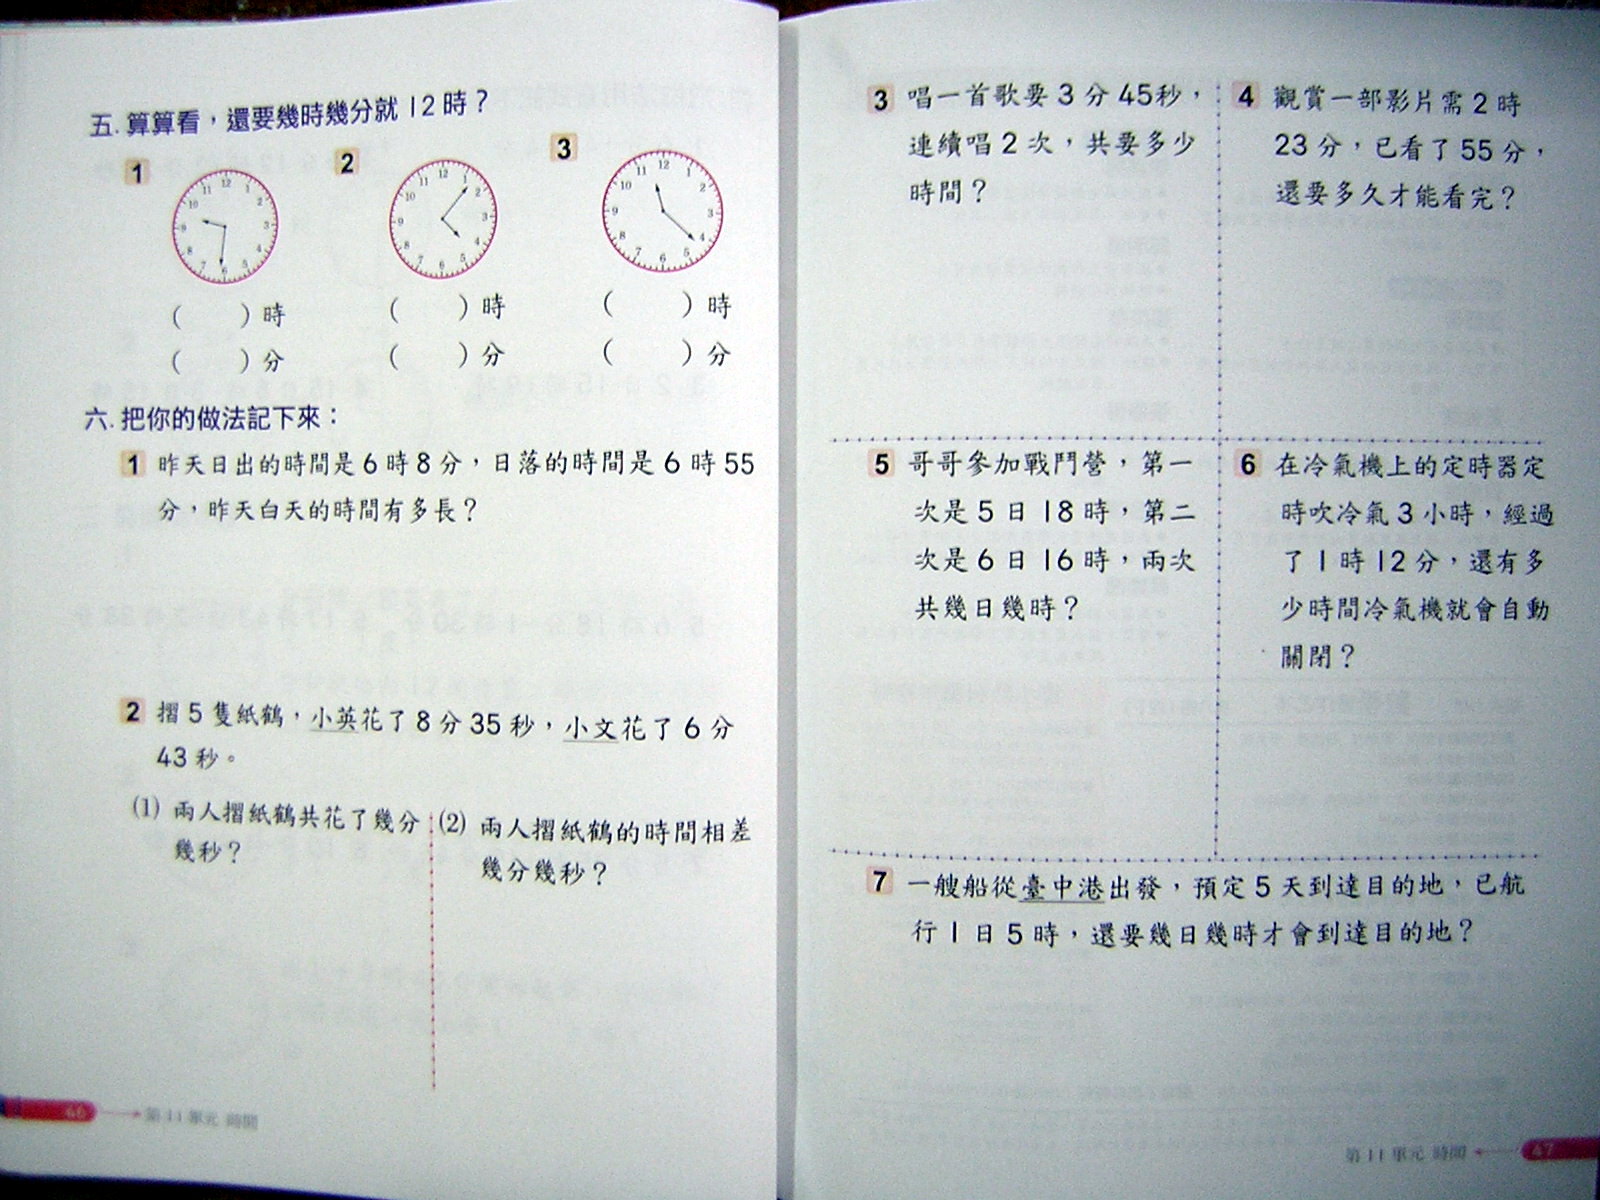 五. 算算看，還要幾時幾分就 12 時？
1
2
3
(　　) 時
(　　) 時
(　　) 時
(　　) 分
(　　) 分
(　　) 分
六. 把你的做法記下來：
1 昨天日出的時間是 6 時 8 分，日落的時間是 6 時 55
分，昨天白天的時間有多長？
2 摺 5 隻紙鶴，小英花了 8 分 35 秒，小文花了 6 分
43 秒。
(1) 兩人摺紙鶴共花了幾分
幾秒？
(2) 兩人摺紙鶴的時間相差
幾分幾秒？
46 第 11 單元 時間
3 唱一首歌要 3 分 45秒，
連續唱 2 次，共要多少
時間？
4 觀賞一部影片需 2 時
23 分，已看了 55 分，
還要多久才能看完？
5 哥哥參加戰鬥營，第一
次是 5 日 18 時，第二
次是 6 日 16 時，兩次
共幾日幾時？
6 在冷氣機上的定時器定
時吹冷氣 3 小時，經過
了 1 時 12 分，還有多
少時間冷氣機就會自動
關閉？
7 一艘船從臺中港出發，預定 5 天到達目的地，已航
行 1 日 5 時，還要幾日幾時才會到達目的地？
第 11 單元 時間 47